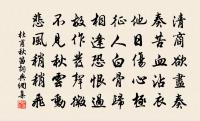 清商欲盡奏
奏苦血沾衣
他日傷心極
征人白骨歸
相逢恐恨過
故作發聲微
不見秋雲動
悲風稍稍飛
杜甫秋笛詞典網集